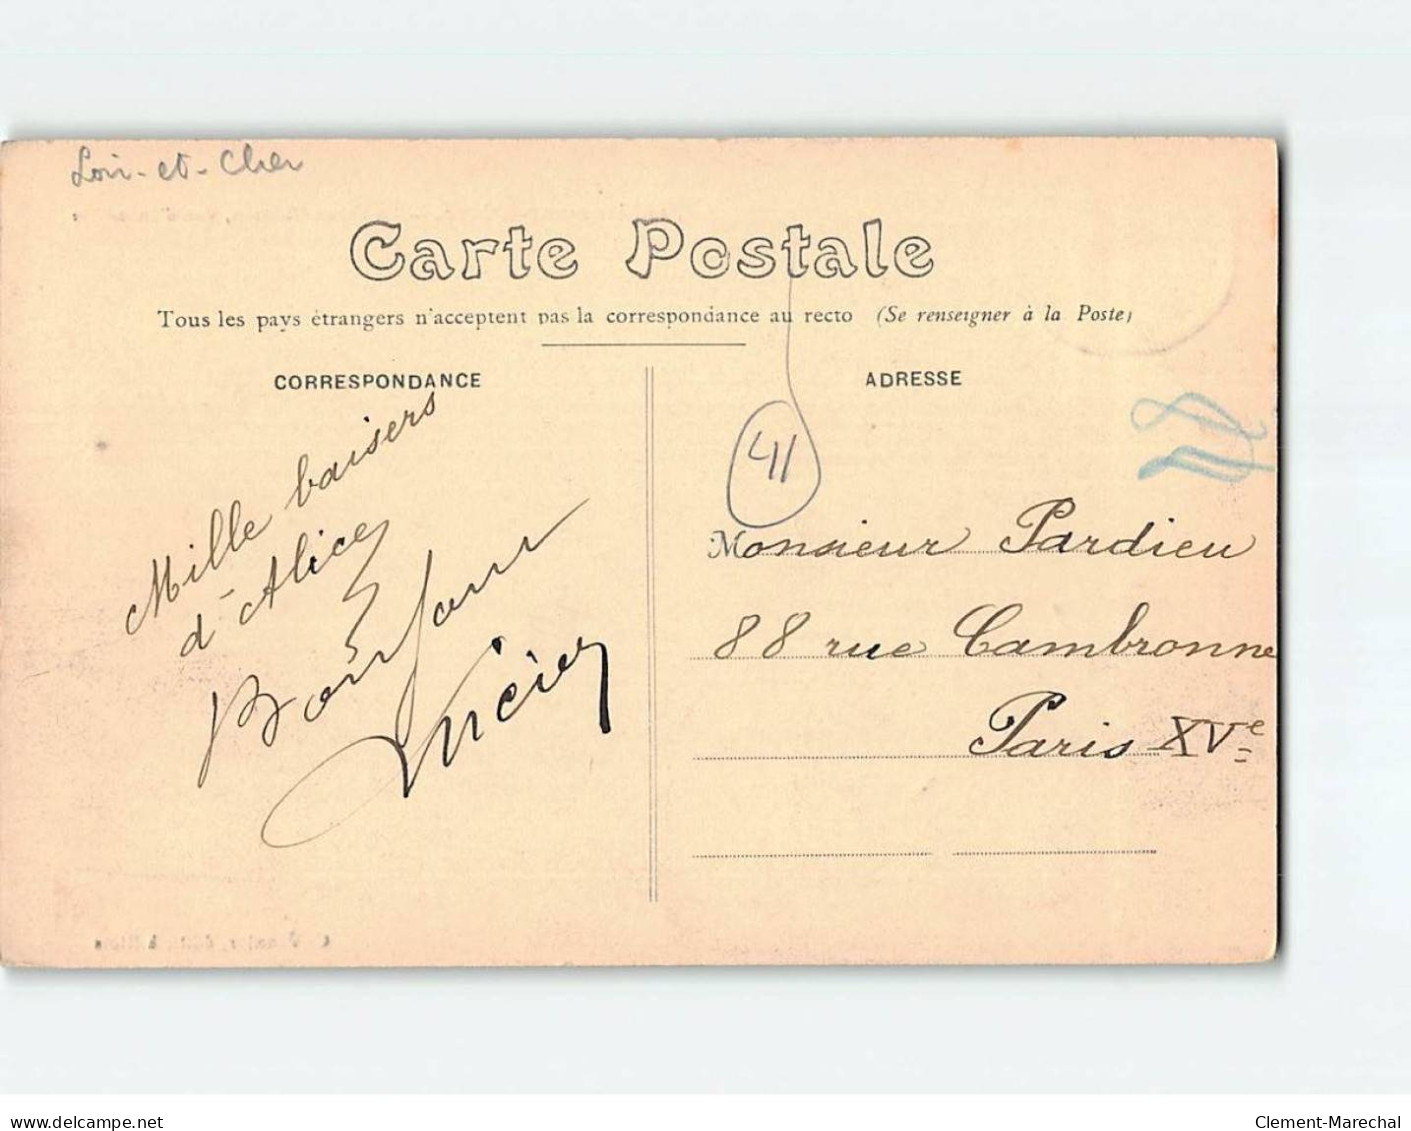 Loir-et-Cher
Carte Postale
Tous les pays étrangers n'acceptent pas la correspondance au recto (Se renseigner à la Poste)
CORRESPONDANCE
Mille baisers
d'Alice
ADRESSE
41
Monsieur Pardieu
88 rue Cambronne
Paris XVe
www.delcampe.net
Clement-Marechal